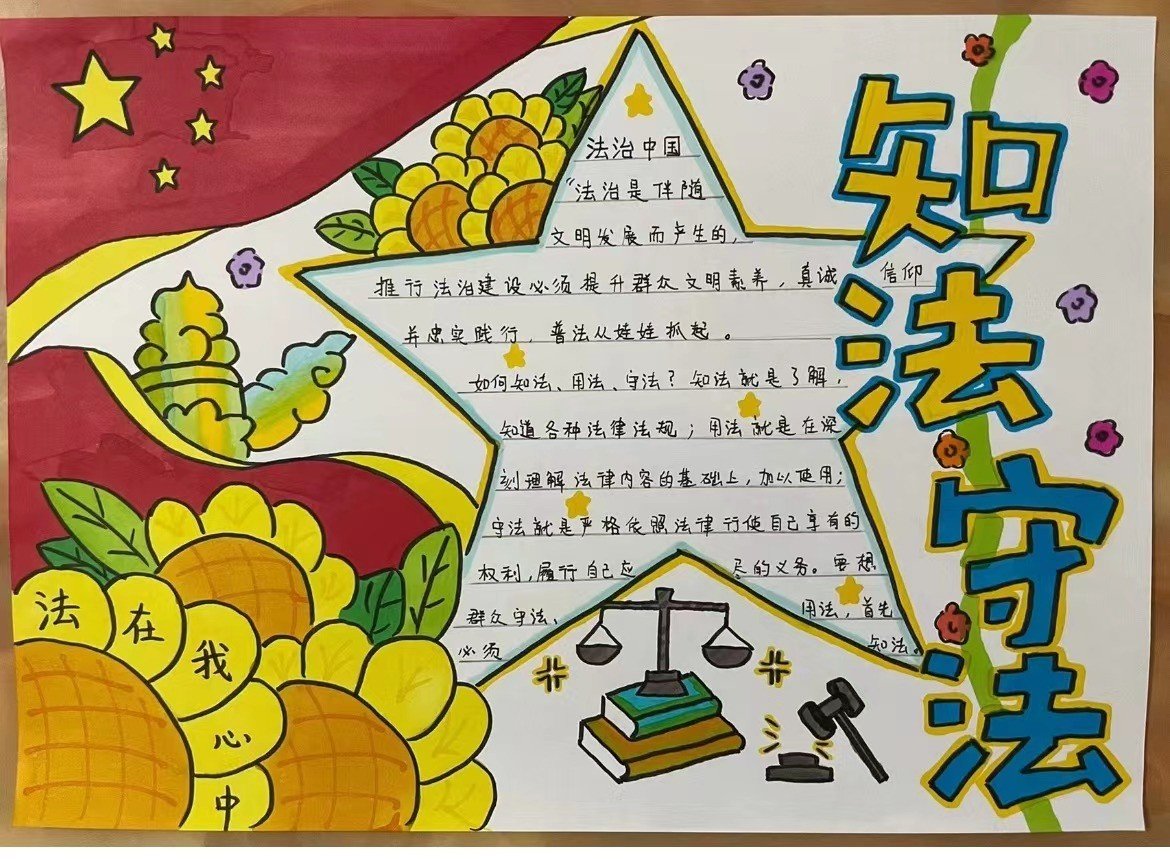 知法守法
法治中国
“法治是伴随
文明发展而产生的，
推行法治建设必须提升群众文明素养，真诚信仰
并忠实践行，普法从娃娃抓起。
如何知法、用法、守法？知法就是了解，
知道各种法律法规；用法就是在深
刻理解法律内容的基础上，加以使用；
守法就是严格依照法律行使自己享有的
权利，履行自己应尽的义务。要想
群众守法、用法，首先
必须知法。
法在我心中